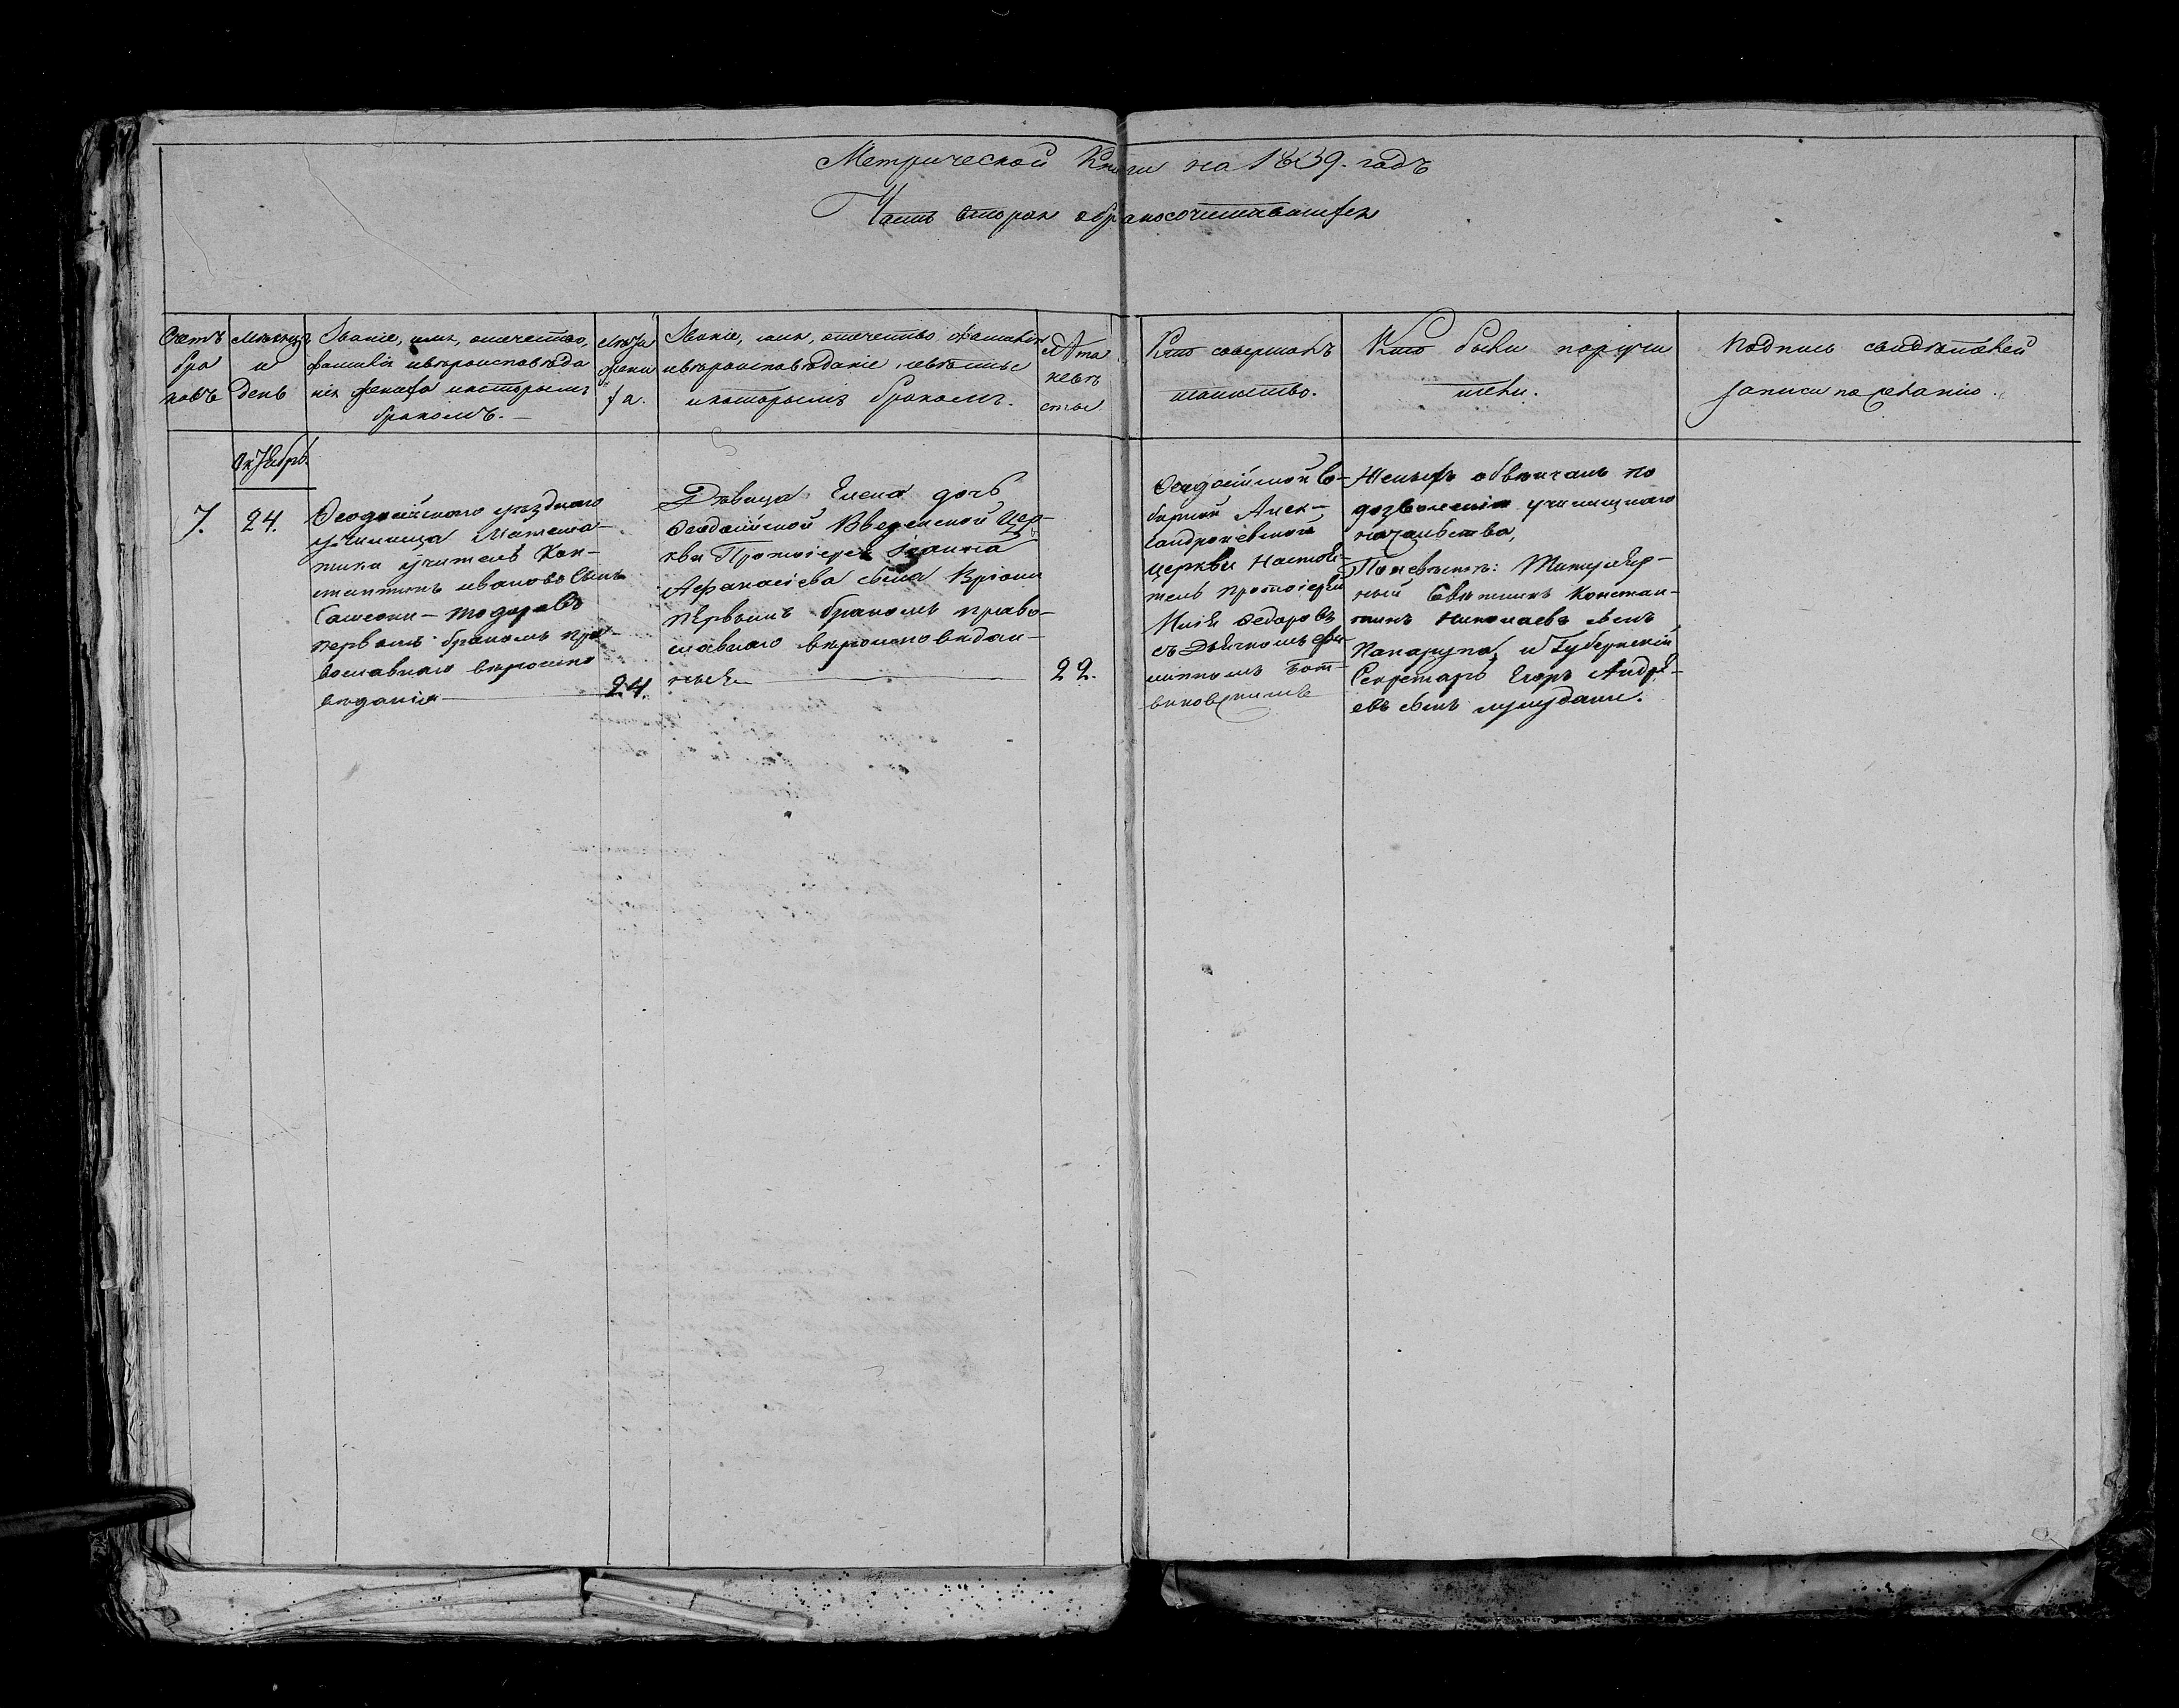 Метрической Книги на 1839. годъ
Часть вторая о бракосочетавшихся
Счетъ браковъ
Мѣсяцъ и день
Званіе, имя, отечество,
фамилія и вѣроисповѣда
нія жениха и которымъ
бракомъ.
Лѣта
жени
ха.
Званіе, имя, отечество фамилія
и вѣроисповѣданіе невѣсты
и которымъ бракомъ.
Лѣта
невѣ
сты
Кто совершалъ
таинство.
Кто были поручи
тели.
Подпись свидѣтелей
записи по желанію.
Октябрь.
7.
24.
Ѳеодосійскаго уѣзднаго
училища Математики учитель Кон-
стантинъ Ивановъ сынъ
Тодоровъ
первымъ бракомъ пра-
вославнаго вѣроиспо
вѣданія
24.
Дѣвица Елена дочь
Ѳеодосійской Введенской Цер-
кви Протоіерея Іоанна
Афанасіева сына Вріони
первымъ бракомъ право-
славнаго вѣроисповѣдан-
22.
Ѳеодосійской Со-
борной Алек-
сандроневской
церкви Настоя-
тель протоіерей
Илія Федоровъ
съ Дьячкомъ
Жениха обвѣнчалъ по
дозволенію училищнаго
начальства,
По невѣстѣ: Титуляр-
ный Совѣтникъ Констан-
тинъ Николаевъ сынъ
Папарупа, и Губернскій
Секретарь Егоръ Андре-
евъ сынъ